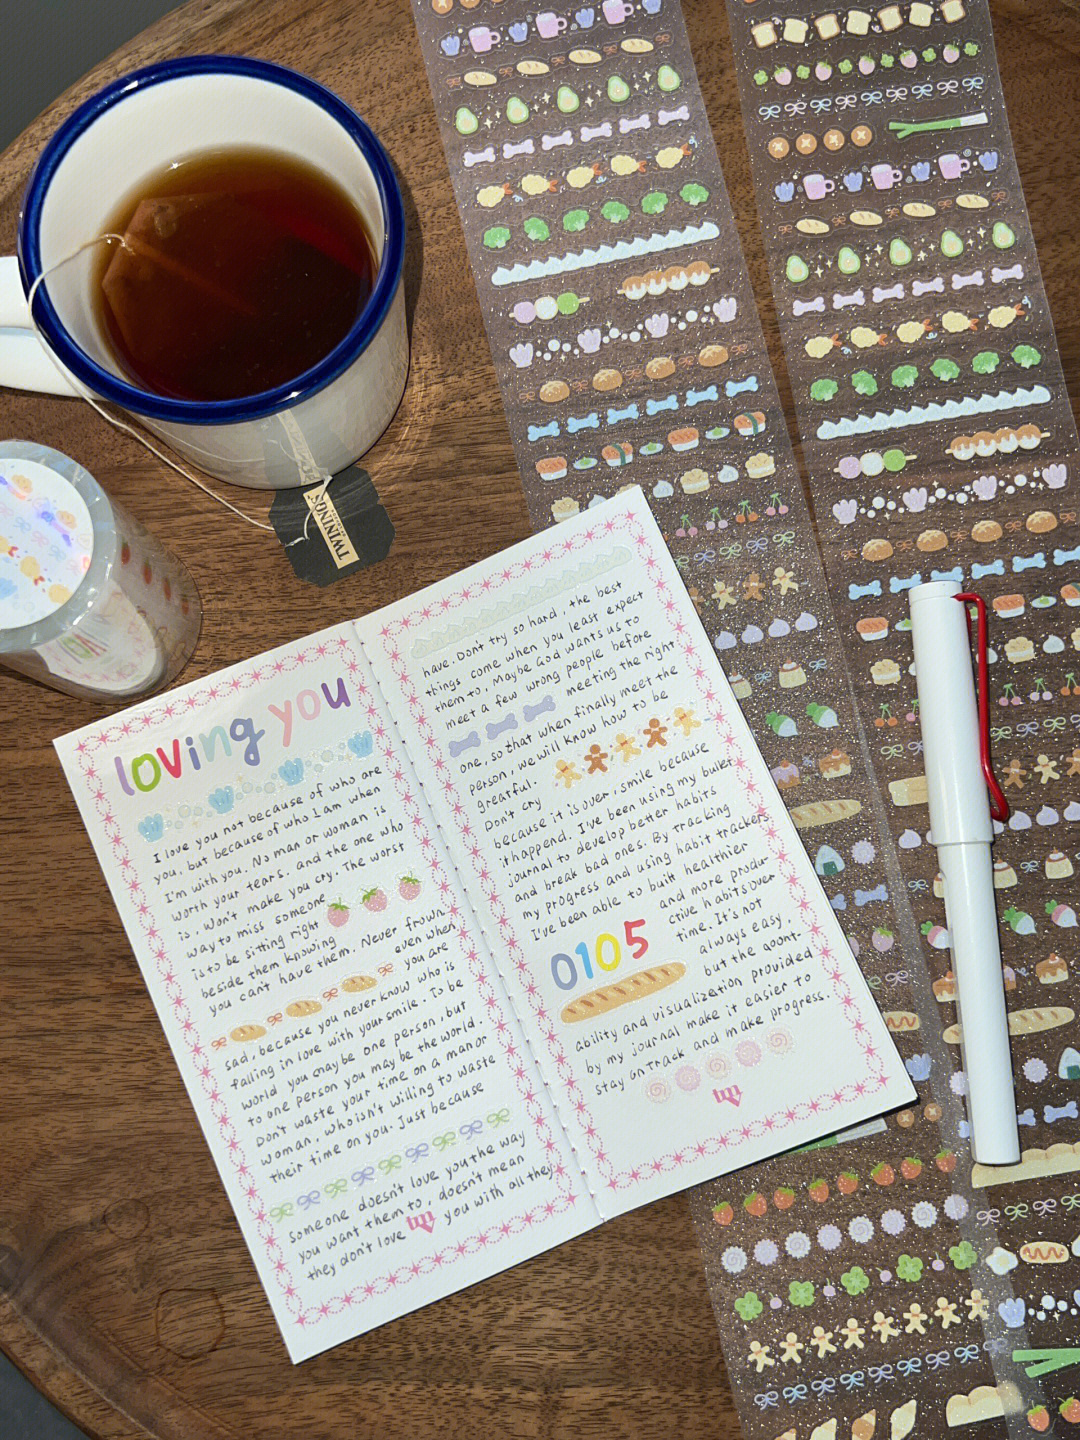 TWININGS
loving you
I love you not because of who are
you, but because of who I am when
I'm with you. No man or woman is
worth your tears. and the one who
is, won't make you cry. The worst
way to miss someone
is to be sitting right
beside them knowing
you can't have them. Never frown.
even when
you are
sad, because you never know who is
falling in love with your smile. To be
world you maybe one person, but
to one person you may be the world.
Don't waste your time on a man or
woman, who isn't willing to waste
their time on you. Just because
someone doesn't love you the way
you want them to, doesn't mean
they don't love you with all they
have. Don't try so hard, the best
things come when you least expect
them to, Maybe God wants us to
meet a few wrong people before
meeting the right
one, so that when finally meet the
person, we will know how to be
greatful.
Don't cry
because it is over, smile because
it happend. I've been using my bullet
journal to develop better habits
and break bad ones. By tracking
my progress and using habit trackers
I've been able to built healthier
and more produ-
ctive habits over
0105
time. It's not
always easy,
but the aount.
ability and visualization provided
by my journal make it easier to
stay on track and make progress.